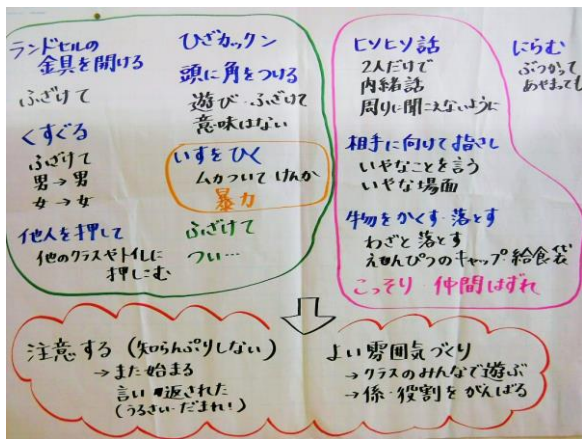 ランドセルの
金具を開ける
ふざけて
くすぐる
ふざけて
男→男
女→女
他人を押して
他のクラスやトイレに
押しこむ
ひざカックン
頭に角をつける
遊び・ふざけて
意味はない
いすをひく
ムカついて けんか
暴力
ふざけて
つい…
ヒソヒソ話
2人だけで
内緒話
周りに聞こえないように
相手に向けて指さし
いやなことを言う
いやな場面
物をかくす・落とす
わざと落とす
えんぴつのキャップ・給食袋
こっそり 仲間はずれ
にらむ
ぶつかって
あやまっても
注意する (知らんぷりしない)
→また始まる
言い返された
(うるさい・だまれ!)
よい雰囲気づくり
→クラスのみんなで遊ぶ
→係・役割をがんばる